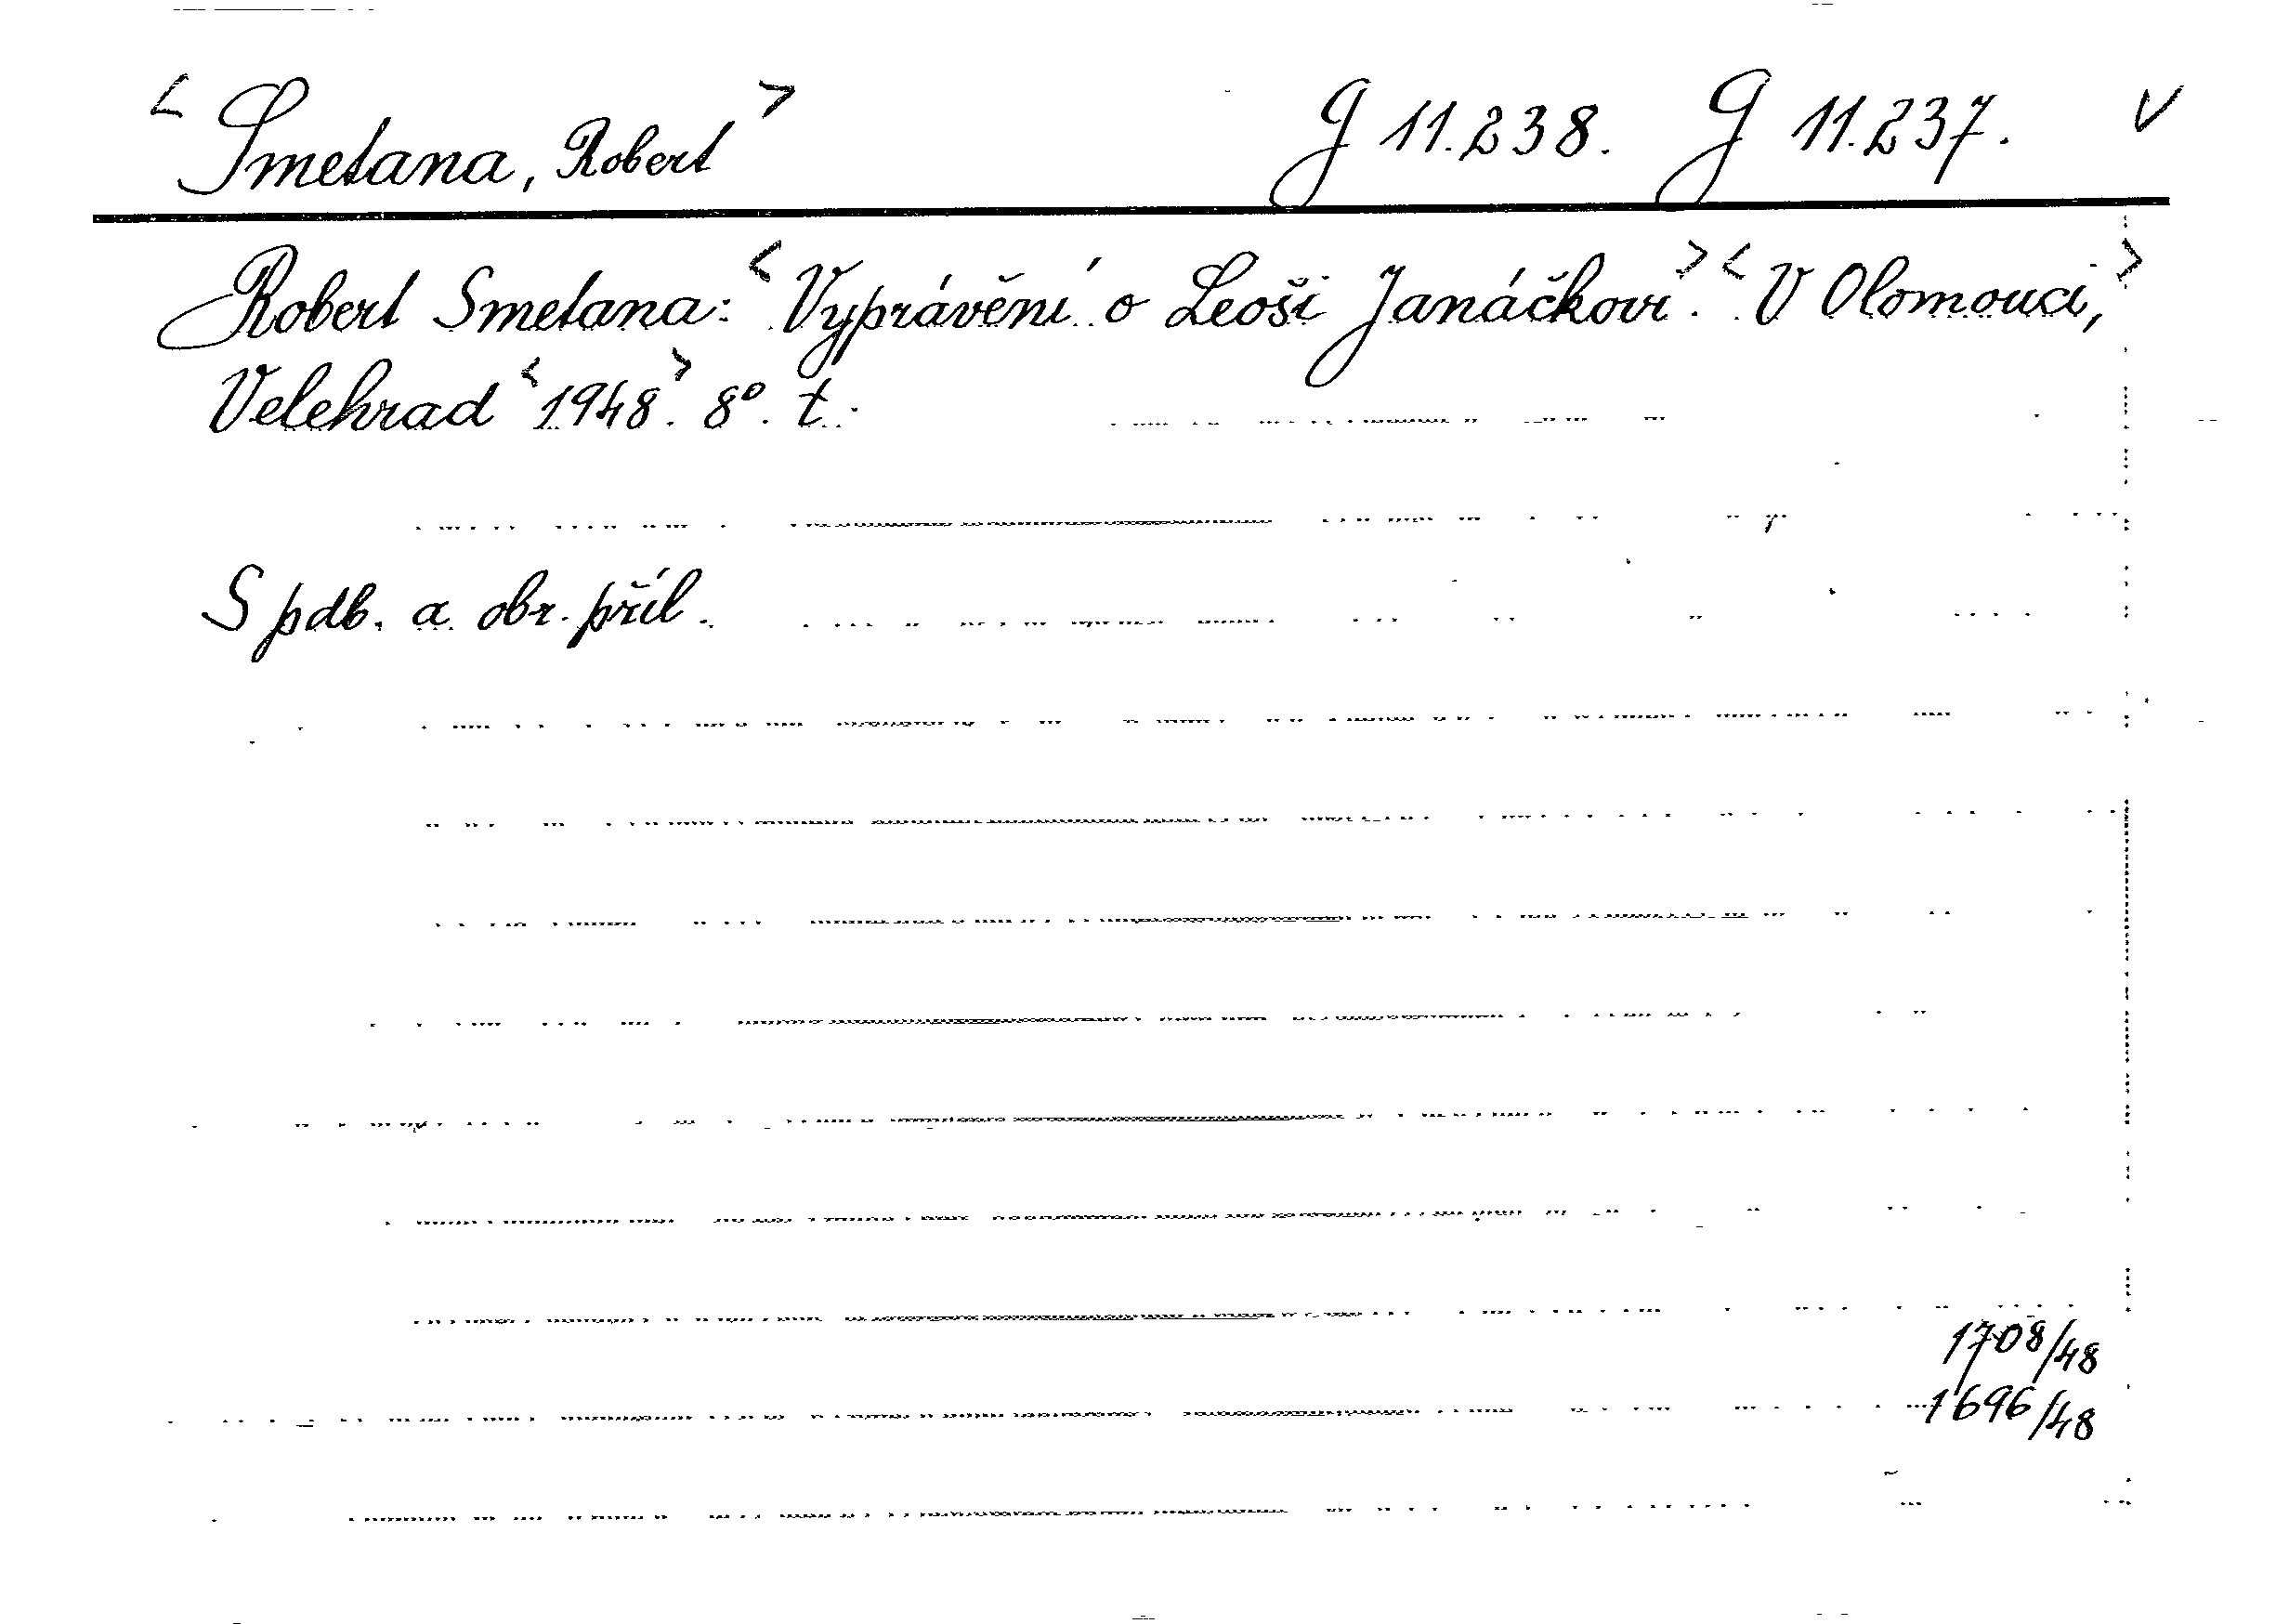 < Smetana, Robert > G 11.238. G 11.237. V
Robert Smetana: < Vyprávění o Leoši Janáčkovi. > < V Olomouci, >
Velehrad < 1948. > 8°. t.
S pdb. a obr. příl.
1708/48
1696/48